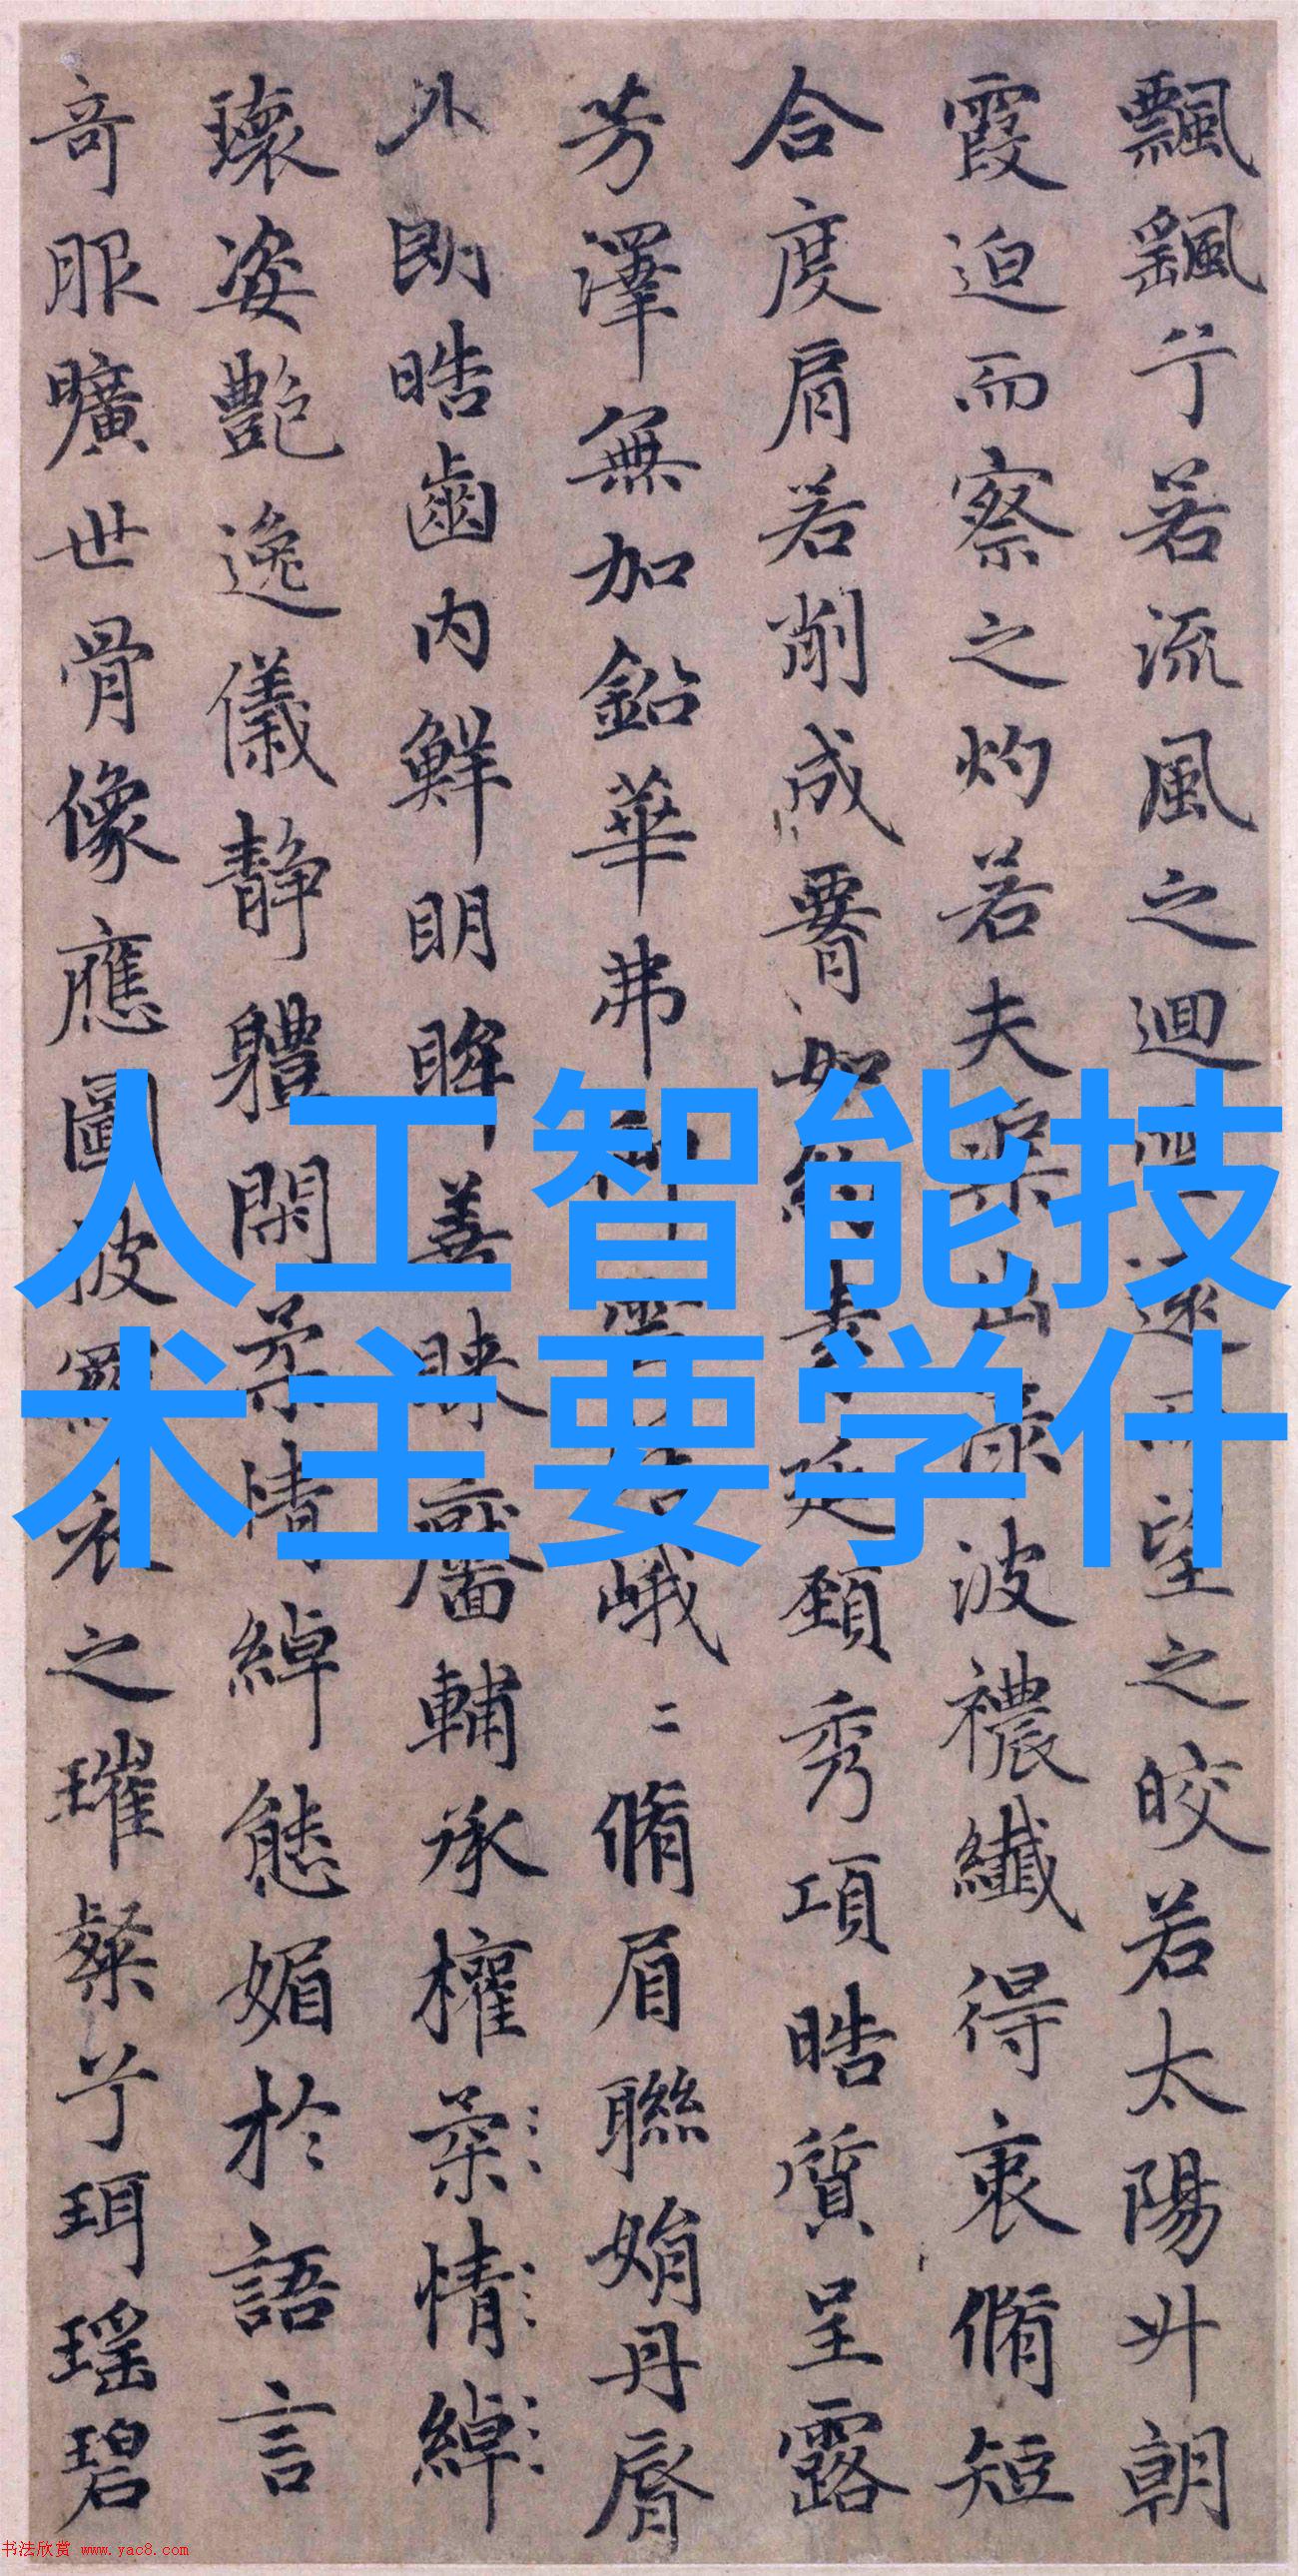 飄颻兮若流風之迴遠望之皎若太陽升朝
霞迫而察之灼若夫渠出渌波禯纖得衷脩短
合度肩若削成如約素延頸秀項皓質呈露
芳澤無加鉛華弗峨二脩眉聯娟丹脣
外朗皓齒內鮮明眸善睞靨輔承權柔情綽
瓌姿艶逸儀静軆閑柔情綽態媚於語言
奇服曠世骨像應圖披羅衣之璀粲兮珥瑶碧
人工智能技
术主要学什
书法欣赏 www.yac8.com